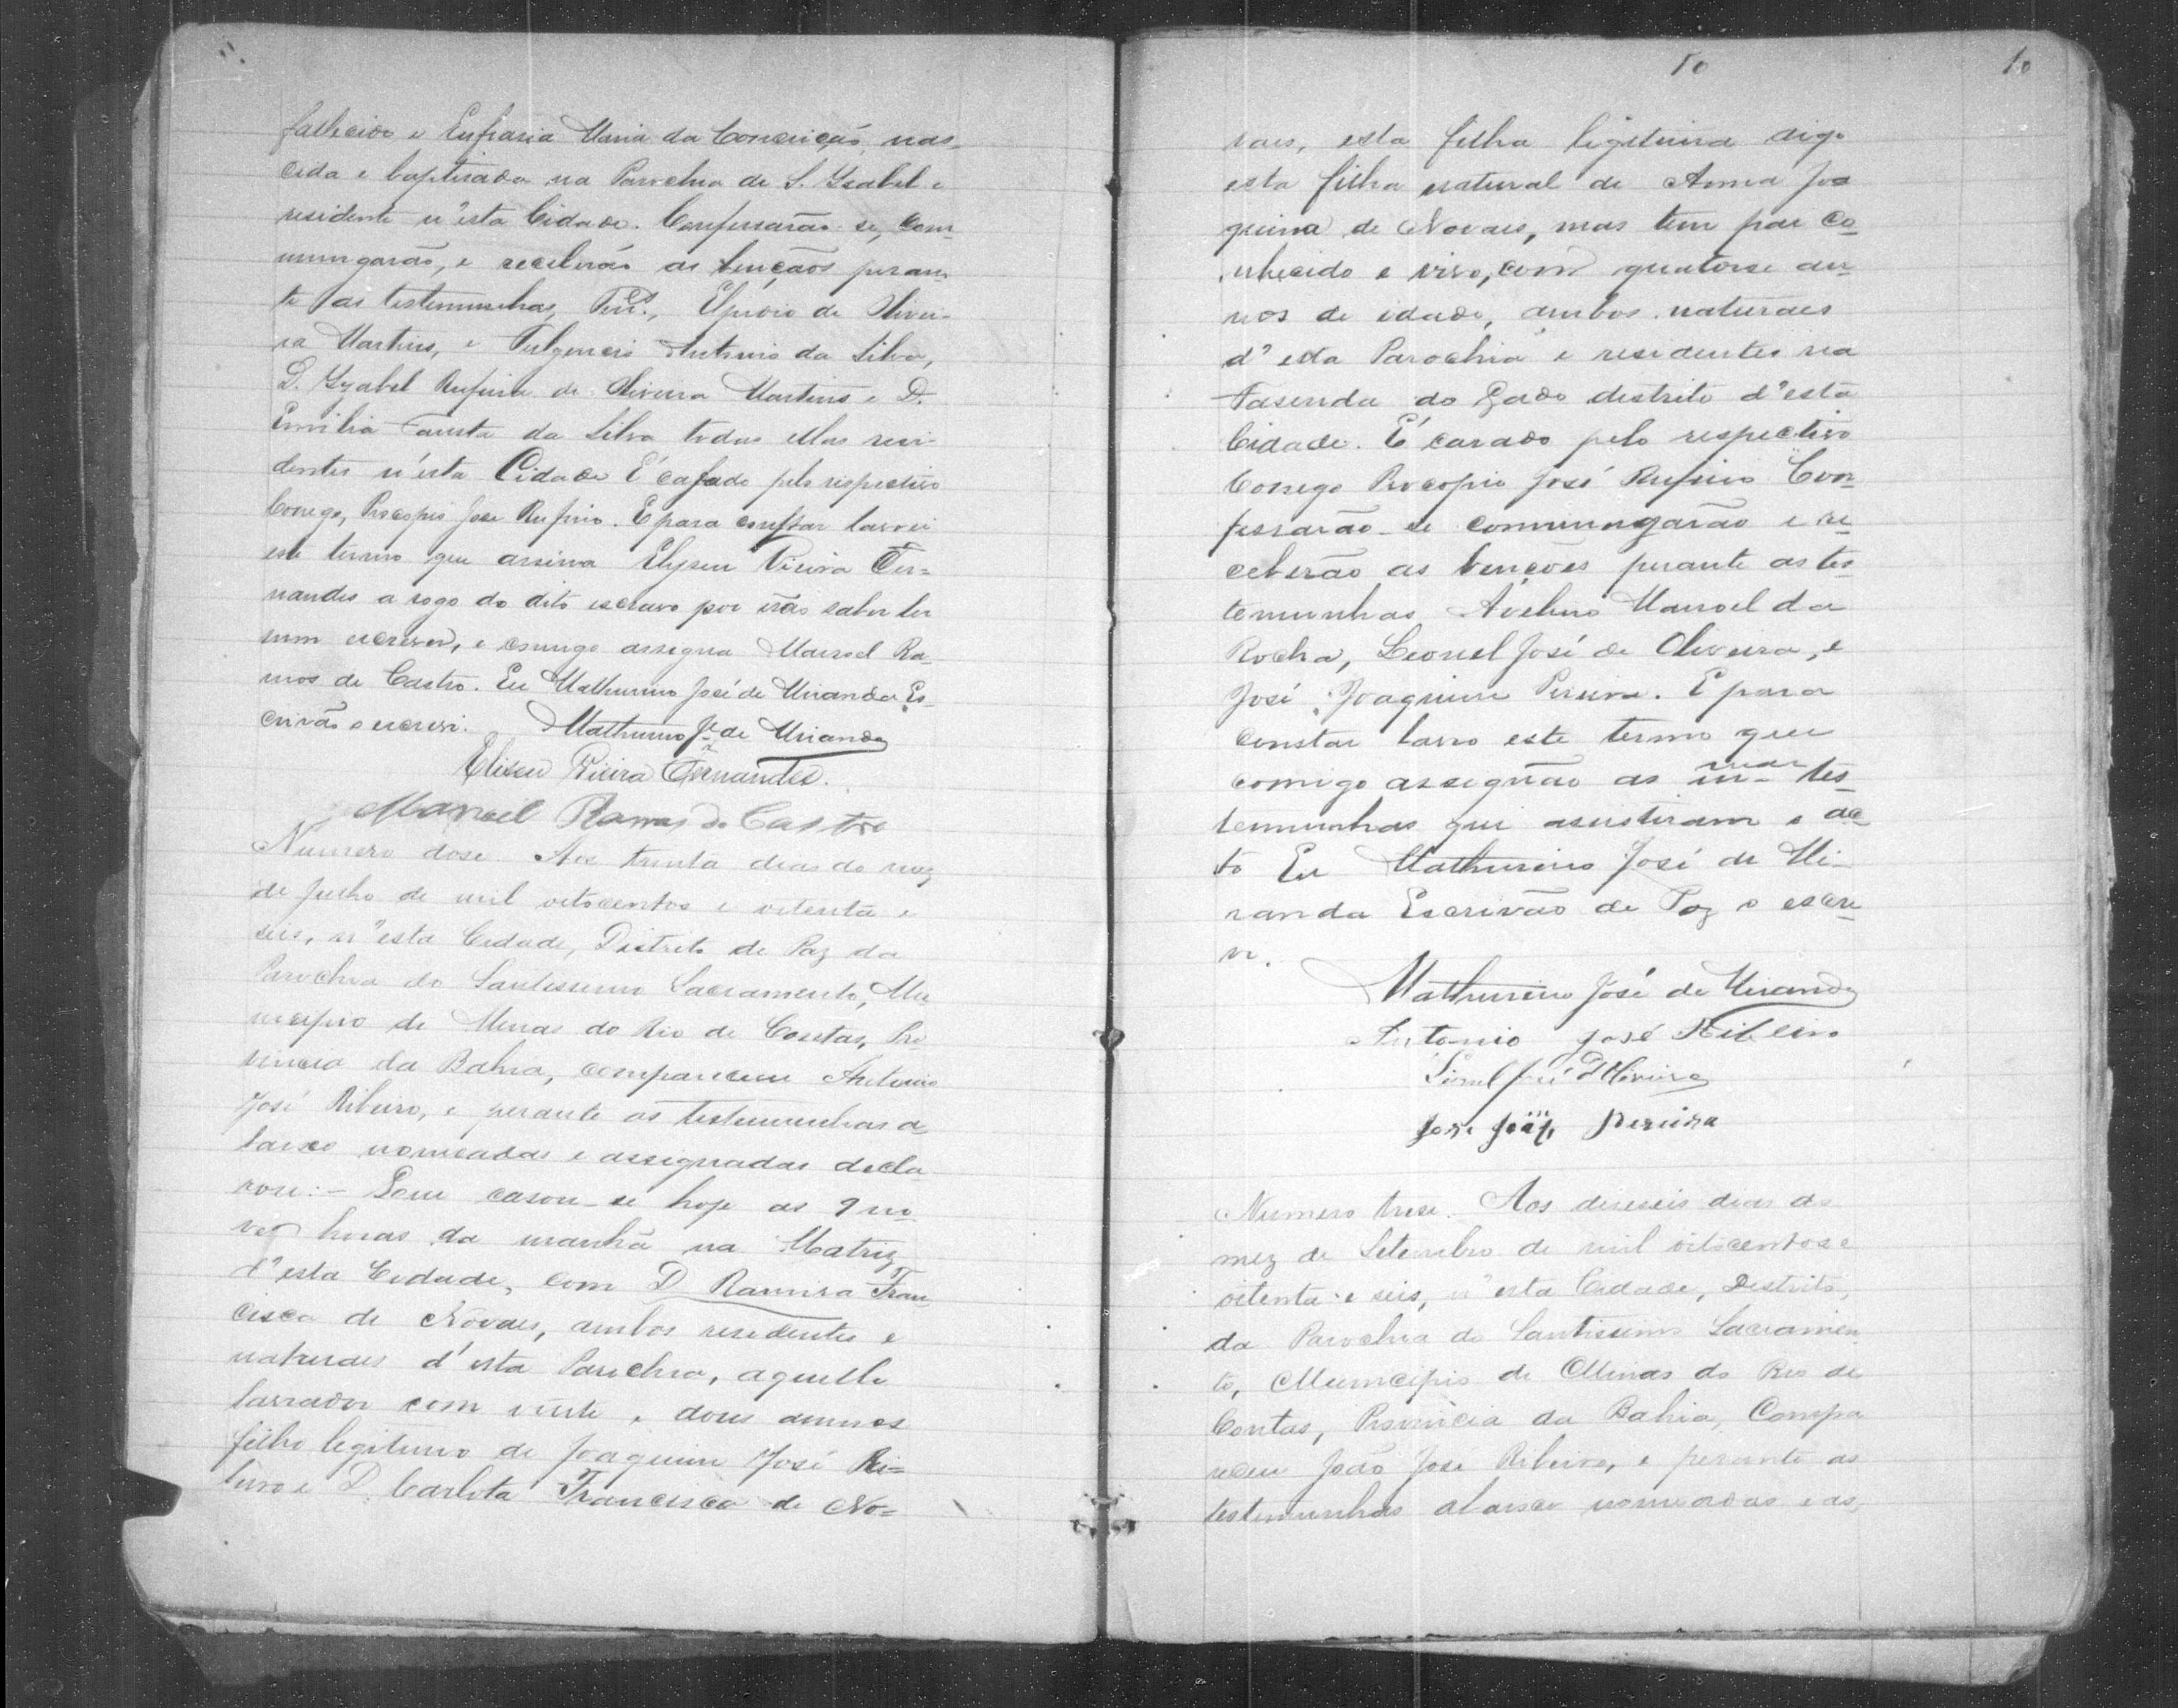 fallecido e Eufrasia Maria da Conceição, nas-
cida e baptisada na Parochia de S. Ysabel e
residente n'esta Cidade. Confessarão-se, com-
mungarão, e receberão as bençãos peran-
te as testemunhas, Elpidio de Olivei-
ra Martins, e Fulgencio Antonio da Silva,
D. Yzabel Rufina de Oliveira Martins e D.
Emilia Fausta da Silva todas ellas resi-
dentes n'esta Cidade É casado pelo respectivo
Conego, Procopio Jose Rufino. E para constar lavrei
este termo que assina Elyseu Vieira Fer=
nandes a rogo do dito escravo por não saber ler
nem escrever, e comigo assigna Manoel Ra-
mos de Castro. Eu Mathurino José de Miranda Es-
crivão o escrevi. Mathurino Je de Miranda
Eliseu Vieira Fernandes.
Manoel Ramos de Castro
Numero dose. Aos trinta dias do mez
de Julho de mil oitocentos e oitenta e
seis, n'esta Cidade, Districto de Paz da
Parochia do Santissimo Sacramento, Mu
nicipio de Minas do Rio de Contas, Pro
vincia da Bahia, compareceu Antonio
José Ribeiro, e perante as testemunhas a-
baixo nomeadas e assignadas decla
rou:- Que casou-se hoje as 9 no
ve horas da manhã na Matriz
d'esta Cidade, com D. Ramira Fran
cisca de Novaes, ambos residentes e
naturaes d'esta Parochia, aquelle
lavrador com vinte e dous annos
filho legitimo de Joaquim José Ri=
beiro e D. Carlota Francisca de No=
10 10
vaes, esta filha legitima digo
esta filha natural de Anna Joa
quina de Novaes, mas tem pai co-
nhecido e vivo, com quatorse an-
nos de idade, ambos naturaes
d'esta Parochia e residentes na
Fasenda do Gado districto d'esta
Cidade. É casado pelo respectivo
Conego Procopio José Rufino Con-
fessarão-se commungarão e re-
ceberão as bençoes perante as tes-
temunhas Avelino Manoel da
Rocha, Leonel José de Oliveira, e
José Joaquim Pereira. E para
constar lavro este termo que
comigo assignão as mesmas tes-
temunhas que assistiram o ac-
to Eu Mathurino José de Mi-
randa Escrivão de Paz o escre-
vi.
Mathurino José de Miranda
Antonio José Ribeiro
Lionel José d'Oliveira
Jose Joaq Pereira
Numero trese. Aos deseseis dias do
mez de Setembro de mil oitocentos e
oitenta e seis, n'esta Cidade, Destrito,
da Parochia do Santissimo Sacramen
to, Municipio de Minas do Rio de
Contas, Provincia da Bahia, Compa
receu João Jose Ribeiro, e perante as
testemunhas abaixo nomeadas e as,